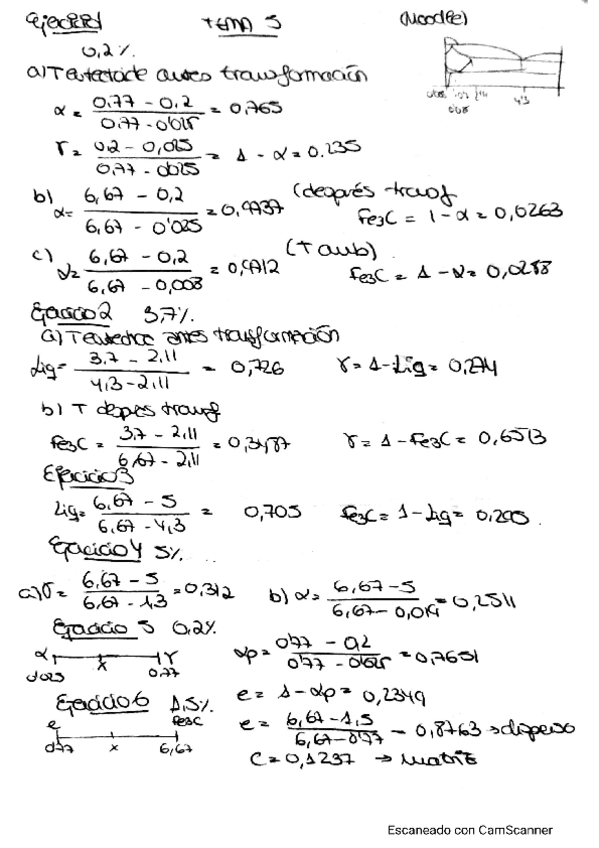 Ejercicio 1 TEMA 5 (Moodle)
0,2%
a) T eutectoide antes transformación
α = (0,77 - 0,2) / (0,77 - 0'025) = 0,765
γ = (0,2 - 0,025) / (0,77 - 0'025) = 1 - α = 0.235
b) α = (6,67 - 0,2) / (6,67 - 0'025) = 0,9737 (después transf
Fe3C = 1 - α = 0,0263
c) α = (6,67 - 0.2) / (6,67 - 0,008) = 0,9712 (T amb)
Fe3C = 1 - α = 0,0288
Ejercicio 2 3,7%
a) T eutectico antes transformación
Liq = (3.7 - 2,11) / (4,3 - 2,11) = 0,726 γ = 1 - Liq = 0,274
b) T despes transf
Fe3C = (3,7 - 2,11) / (6,67 - 2,11) = 0,3487 γ = 1 - Fe3C = 0,6513
Ejercicio 3
Liq = (6,67 - 5) / (6,67 - 4,3) = 0,705 Fe3C = 1 - Liq = 0,295
Ejercicio 4 5%
a) γ = (6,67 - 5) / (6,67 - 1,3) = 0,312 b) α = (6,67 - 5) / (6,67 - 0,014) = 0,2511
Ejercicio 5 0.2%
α x γ
0'025 0.77
αp = (0'77 - 0,2) / (0'77 - 0'025) = 0,7651
e = 1 - αp = 0,2349
Ejercicio 6 1,5%
e x Fe3C
0'77 6,67
e = (6,67 - 1,5) / (6,67 - 0'77) = 0,8763 → disperso
C = 0,1237 → matriz
Escaneado con CamScanner